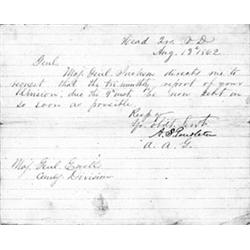 Head Qrs V. D.
Aug 13th 1862
Genl.
Maj. Genl. Jackson directs me to
request that the tri-monthly report of your
Division, due the inst, be now sent in
so soon as possible.
Resply
Yr Obdt Servt
A. S. Pendleton
A. A. G.
Maj. Genl. Ewell
Comdg Division